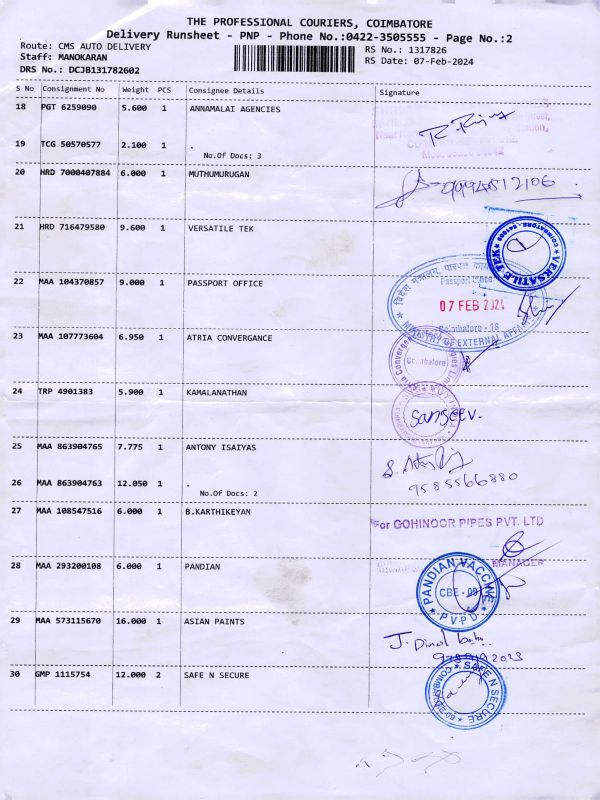 THE PROFESSIONAL COURIERS, COIMBATORE
Delivery Runsheet - PNP - Phone No.:0422-3505555 - Page No.:2
Route: CMS AUTO DELIVERY
Staff: MANOKARAN
DRS No.: DCJB131782602
RS No.: 1317826
RS Date: 07-Feb-2024
S No Consignment No Weight PCS Consignee Details Signature
18 PGT 6259090 5.600 1 ANNAMALAI AGENCIES
19 TCG 50570577 2.100 1 .
No.Of Docs: 3
20 HRD 7000407884 6.000 1 MUTHUMURUGAN
9994512106
21 HRD 716479580 9.600 1 VERSATILE TEK
VERSATILE TEK COIMBATORE
22 MAA 104370857 9.000 1 PASSPORT OFFICE
Passport Office
07 FEB 2024
Coimbatore - 18
MINISTRY OF EXTERNAL AFFAIRS
23 MAA 107773604 6.950 1 ATRIA CONVERGANCE
Coimbatore
24 TRP 4901383 5.900 1 KAMALANATHAN
Sanjeev.
25 MAA 863904765 7.775 1 ANTONY ISAIYAS
9585566880
26 MAA 863904763 12.050 1 .
No.Of Docs: 2
27 MAA 108547516 6.000 1 B.KARTHIKEYAN
For GOHINOOR PIPES PVT. LTD
MANAGER
28 MAA 293200108 6.000 1 PANDIAN
PANDIAN VACCINE
CBE - 09
PVPD
29 MAA 573115670 16.000 1 ASIAN PAINTS
30 GMP 1115754 12.000 2 SAFE N SECURE
SAFE N SECURE